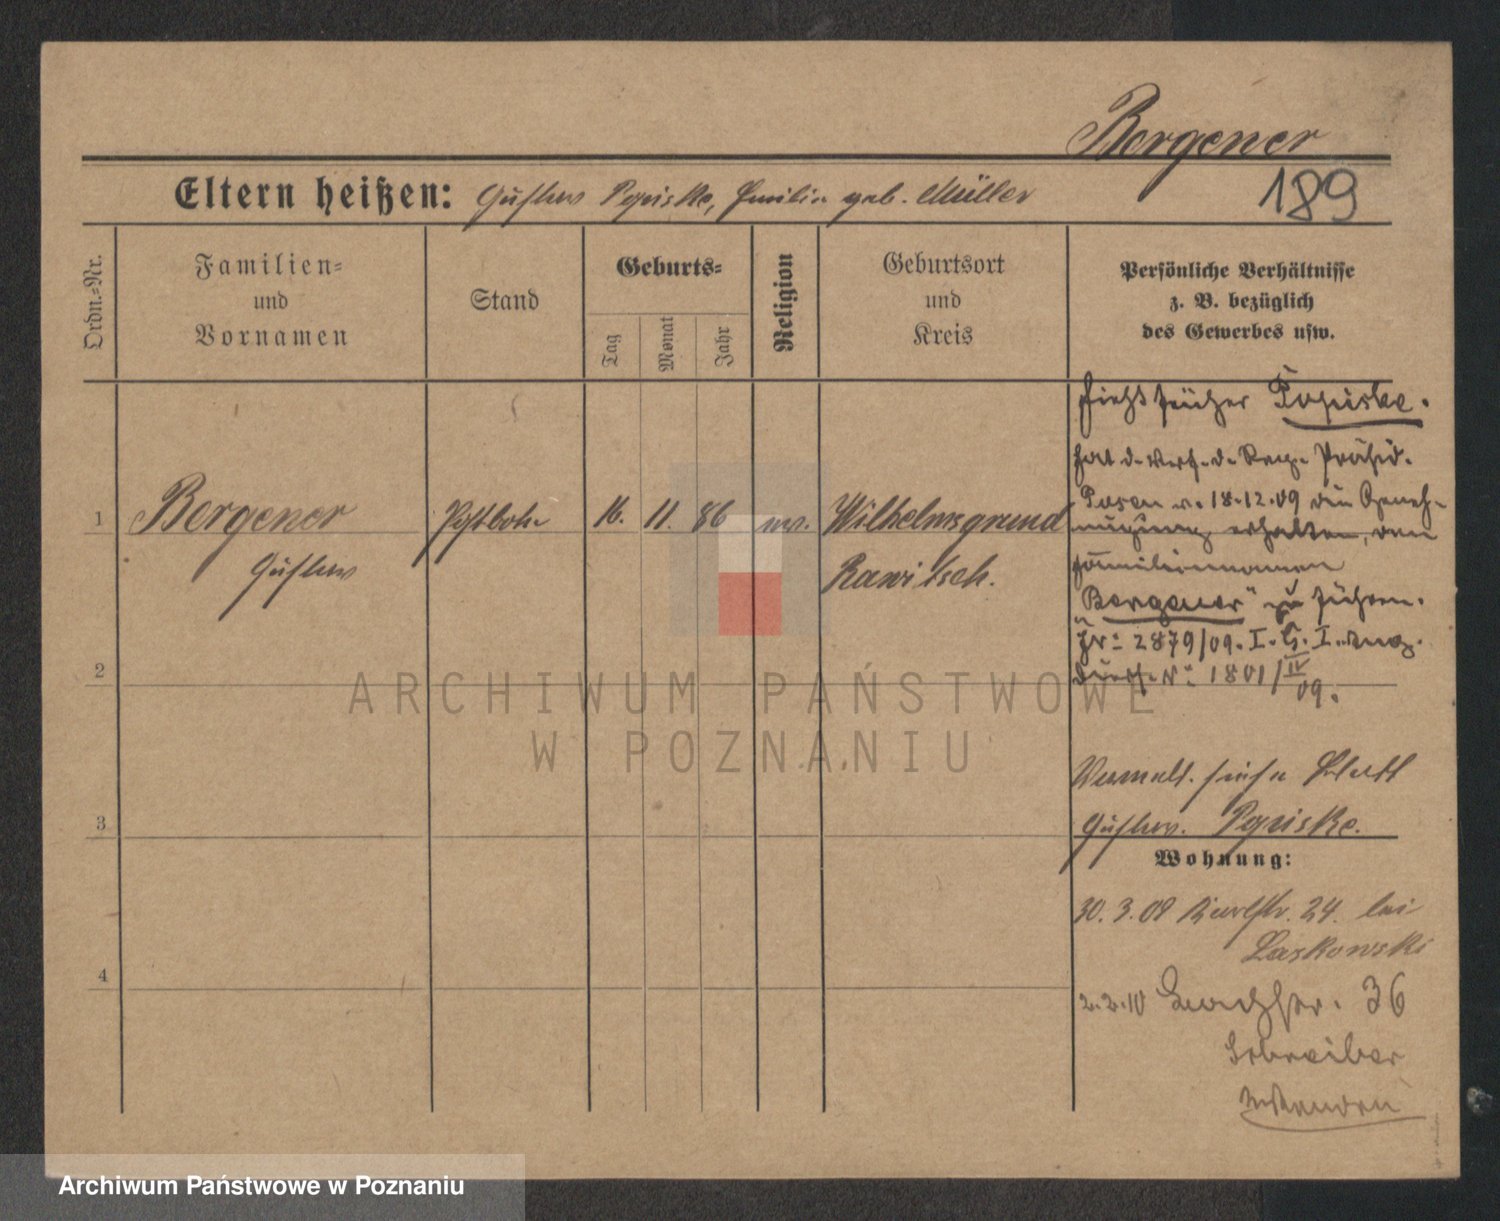 Bergener
189
Eltern heißen: Gustav Popiske, Emilie geb. Müller
Ordn.-Nr.
Familien-
und
Vornamen
Stand
Geburts-
Tag
Monat
Jahr
Religion
Geburtsort
und
Kreis
Persönliche Verhältnisse
z. B. bezüglich
des Gewerbes usw.
1
Bergener
Gustav
Postbote
16. 11. 86
ev.
Wilhelmsgrund
Rawitsch.
2
3
4
hieß früher Popiske.
hat d. Verf. d. Reg. Präsid.
Posen v. 18.12.09 die Geneh-
migung erhalten, den
Familiennamen
"Bergener" zu führen.
2879/09. I. G. I.
N: 1801/IV
09.
Gustav. Popiske.
Wohnung:
30. 3. 09 24. bei
Laskowski
2.2.10 36
Schreiber
ARCHIWUM PAŃSTWOWE
W POZNANIU
Archiwum Państwowe w Poznaniu